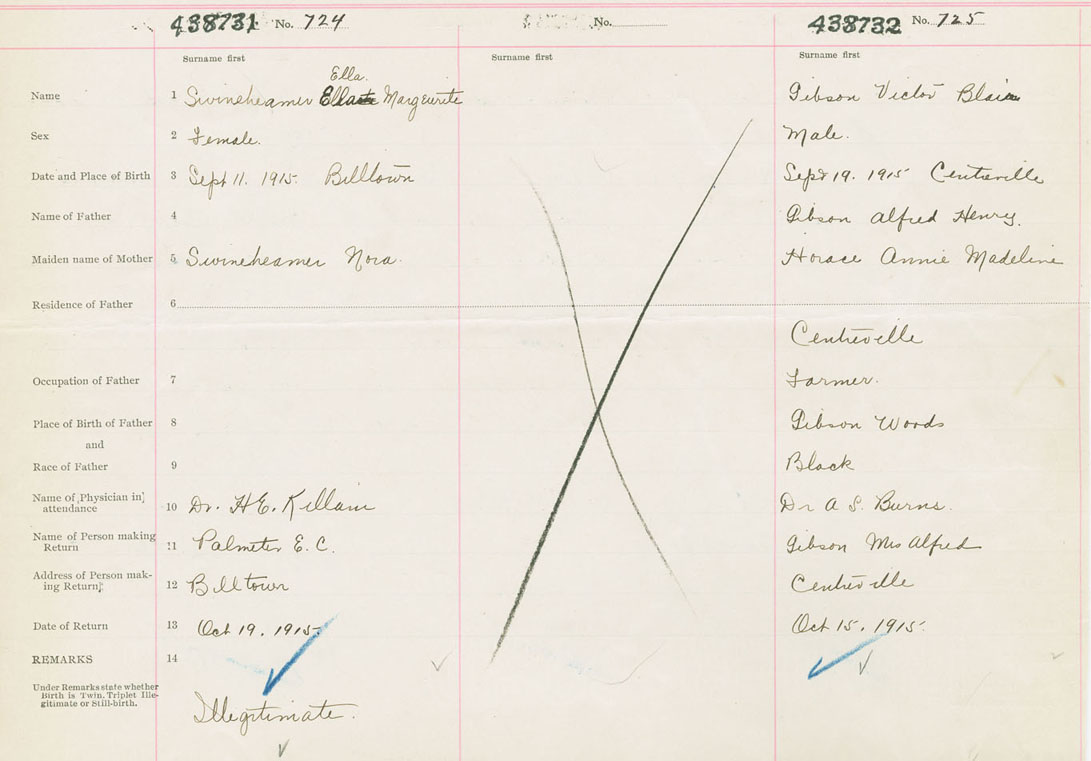 438731 No. 724
No.
438732 No. 725
Surname first
Surname first
Surname first
Ella.
Name 1 Swineheamer Marguerite Gibson Victor Blair
Sex 2 Female. Male.
Date and Place of Birth 3 Sept 11. 1915. Billtown Sept 19. 1915 Centreville
Name of Father 4 Gibson Alfred Henry.
Maiden name of Mother 5 Swineheamer Nora. Horace Annie Madeline
Residence of Father 6
Centreville
Occupation of Father 7 Farmer.
Place of Birth of Father 8 Gibson Woods
and
Race of Father 9 Black
Name of Physician in
attendance 10 Dr. H E. Killam Dr A S. Burns.
Name of Person making
Return 11 Palmeter E. C. Gibson Mrs Alfred
Address of Person mak-
ing Return 12 Billtown Centreville
Date of Return 13 Oct 19. 1915. Oct 15. 1915.
REMARKS 14
Under Remarks state whether
Birth is Twin. Triplet Ille-
gitimate or Still-birth.
Illegitimate.